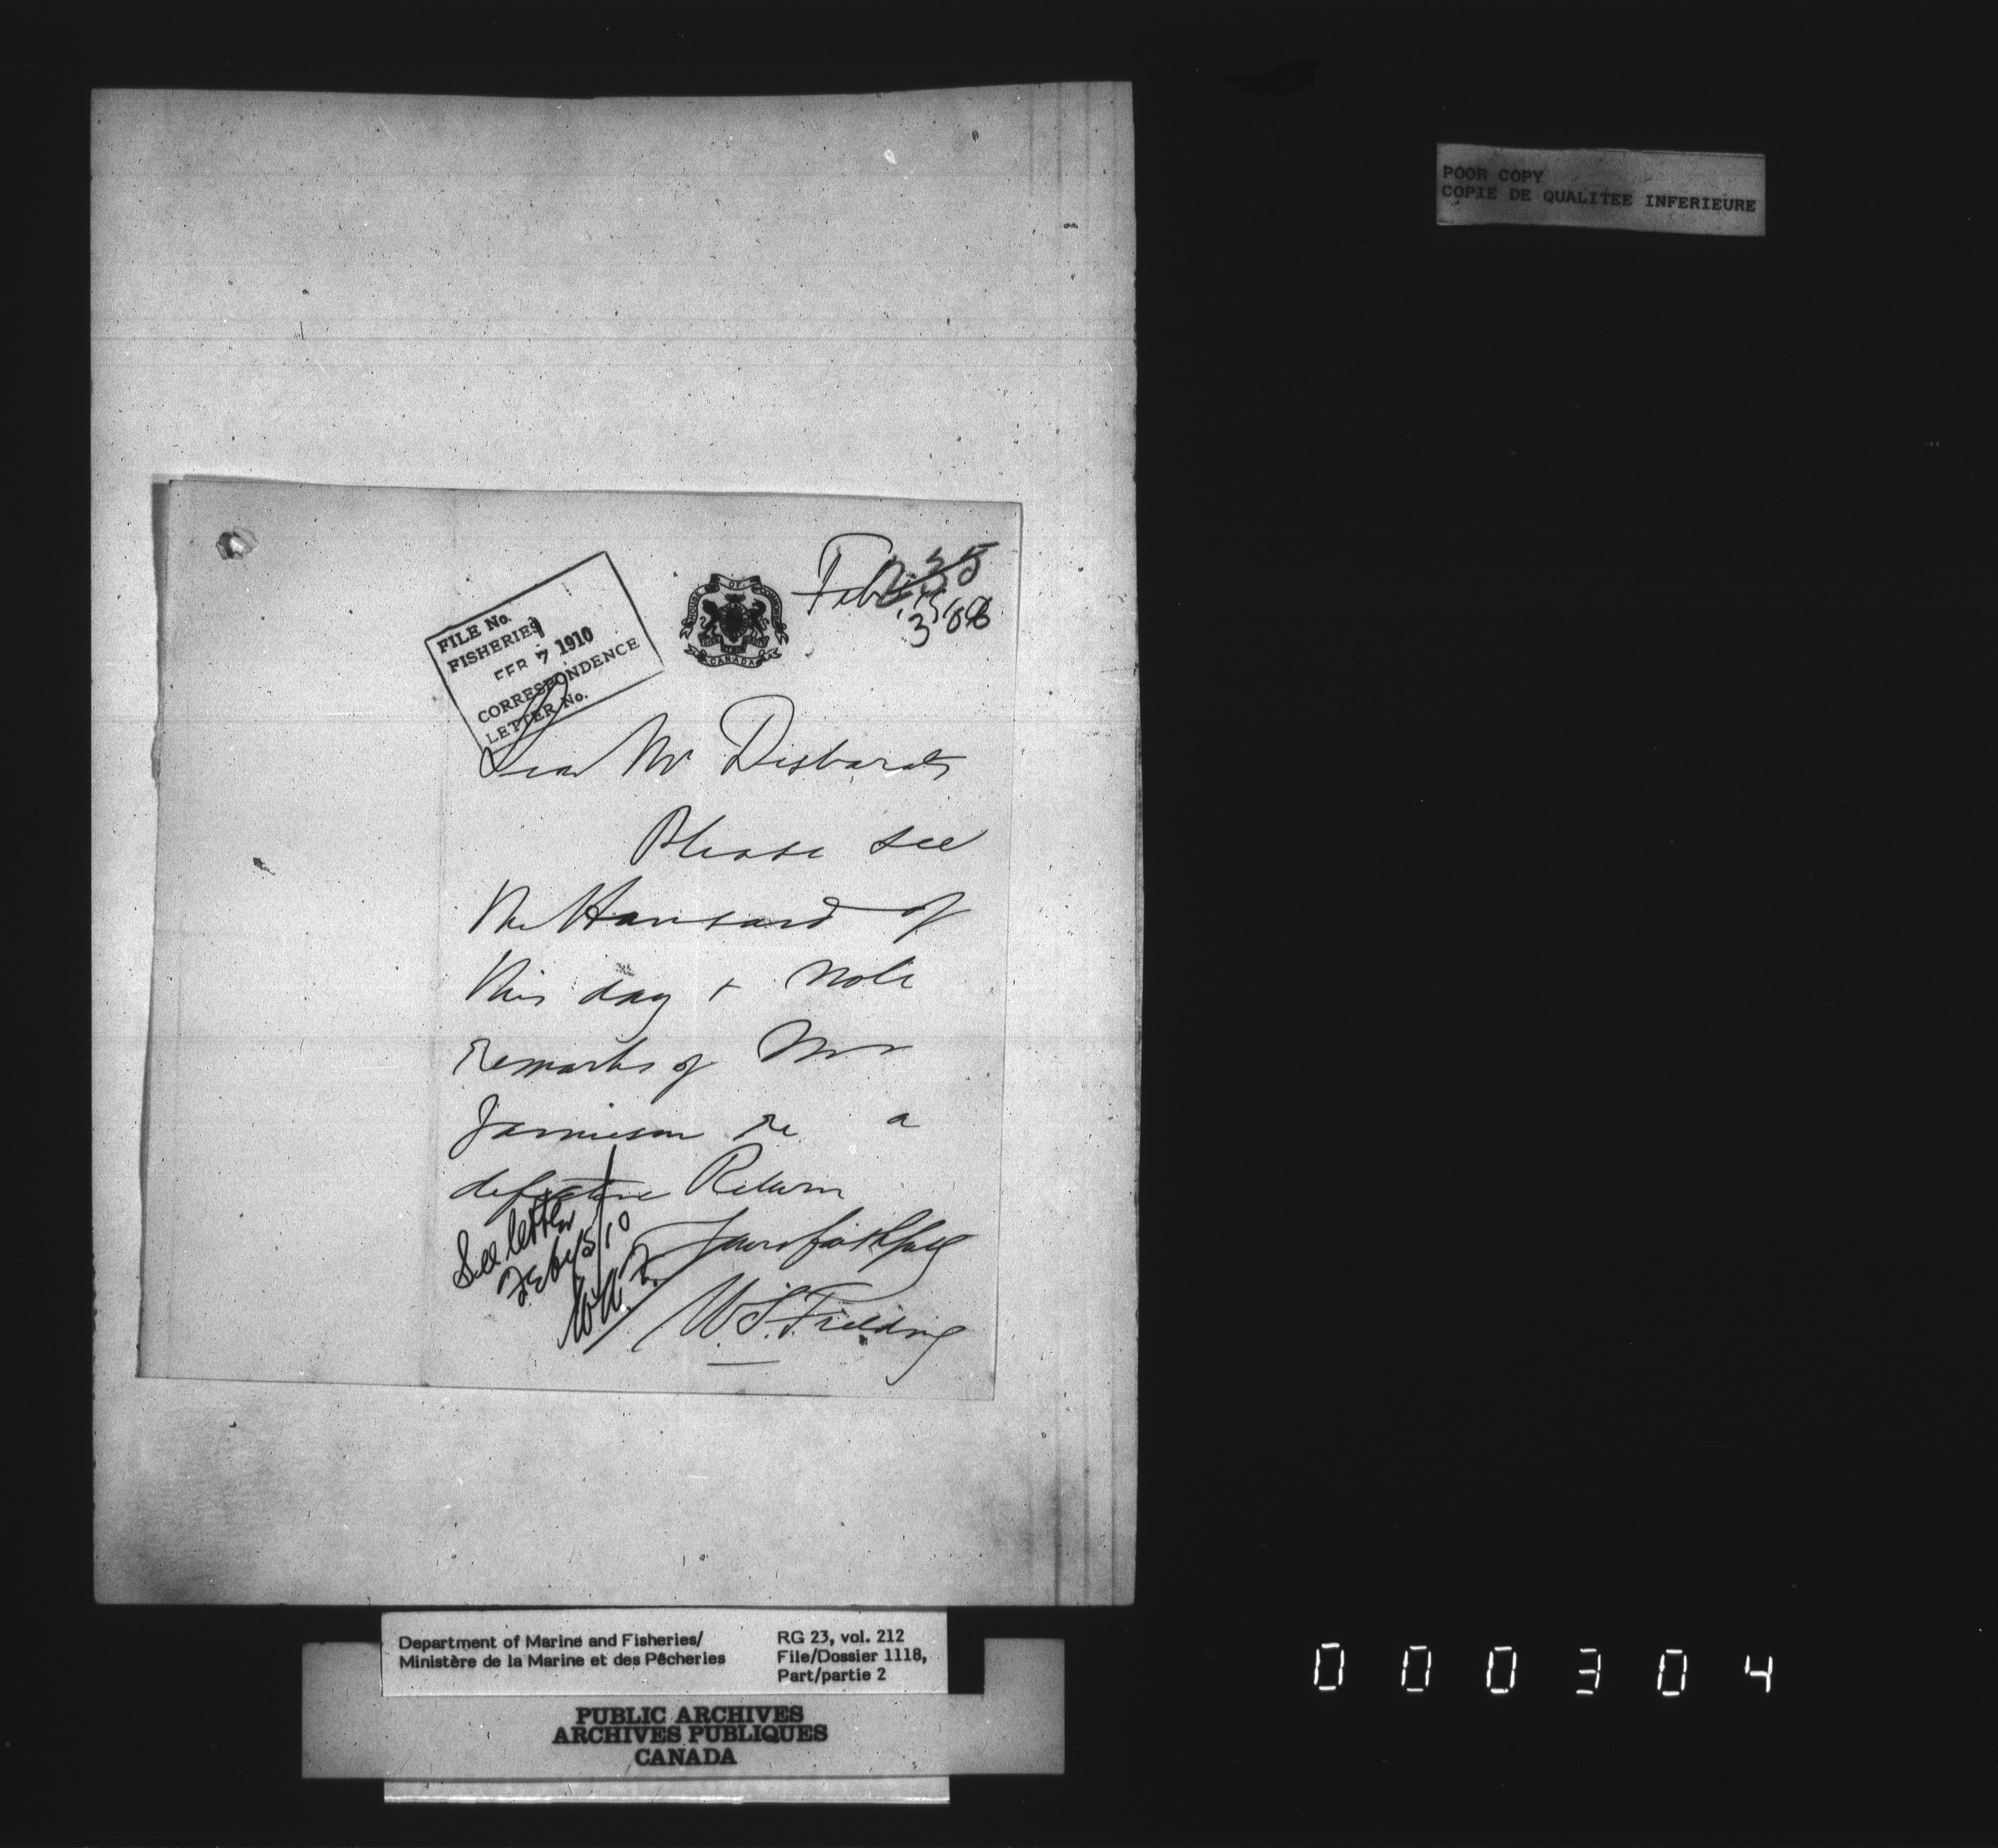 POOR COPY
COPIE DE QUALITEE INFERIEURE
FILE No.
FISHERIES
FEB 7 1910
CORRESPONDENCE
LETTER No.
HOUSE OF COMMONS
CANADA
Feb
Dear Mr Disbarats
Please see
the Hansard of
this day + note
remarks of Mr
Jamieson re a
defective Return
Yours faithfully
W.S. Fielding
See letter
Feb 15/10
Department of Marine and Fisheries/
Ministère de la Marine et des Pêcheries
RG 23, vol. 212
File/Dossier 1118,
Part/partie 2
PUBLIC ARCHIVES
ARCHIVES PUBLIQUES
CANADA
000304